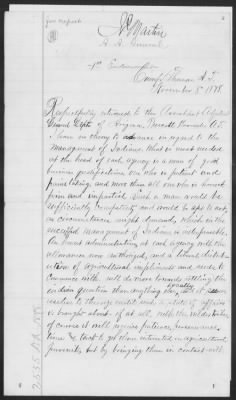 J P Martin
A. A. General
1st Endorsement
Camp Thomas A.T.
November 5" 1878
Respectfully returned to the Assistant Adjutant
General Dept of Arizona, Prescott Barracks A.T.
I have no theory to advance in regard to the
management of Indians. What is most needed
at the head of each agency is a man of good
business qualifications one who is patient and
pains taking, and more than all one who is honest
firm and impartial. Such a man would be
sufficiently competent and would to act,
as circumstances might demand, which in the
successful management of Indians is indispensible.
An honest administration at each agency with the
allowance now authorized, and a liberal distrib-
ution of agricultural implements and seeds, to
commence with will do more towards settling the
indian question than anything else, but it
useless to theorize until such a state of affairs
is brought about. of
of course it will require patience, perseverance,
time & tact to get them interested in agricultural
pursuits but by bringing them in contact with